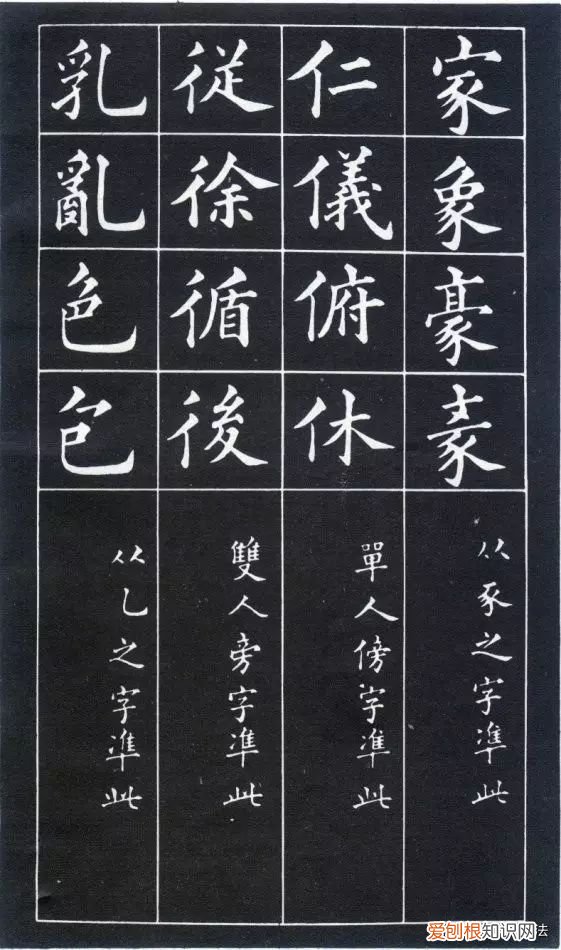 家象豪
从豕之字凖此
仁儀俯休
單人傍字凖此
従徐循後
雙人旁字凖此
乳亂色包
从乙之字凖此
爱刨根知识网法